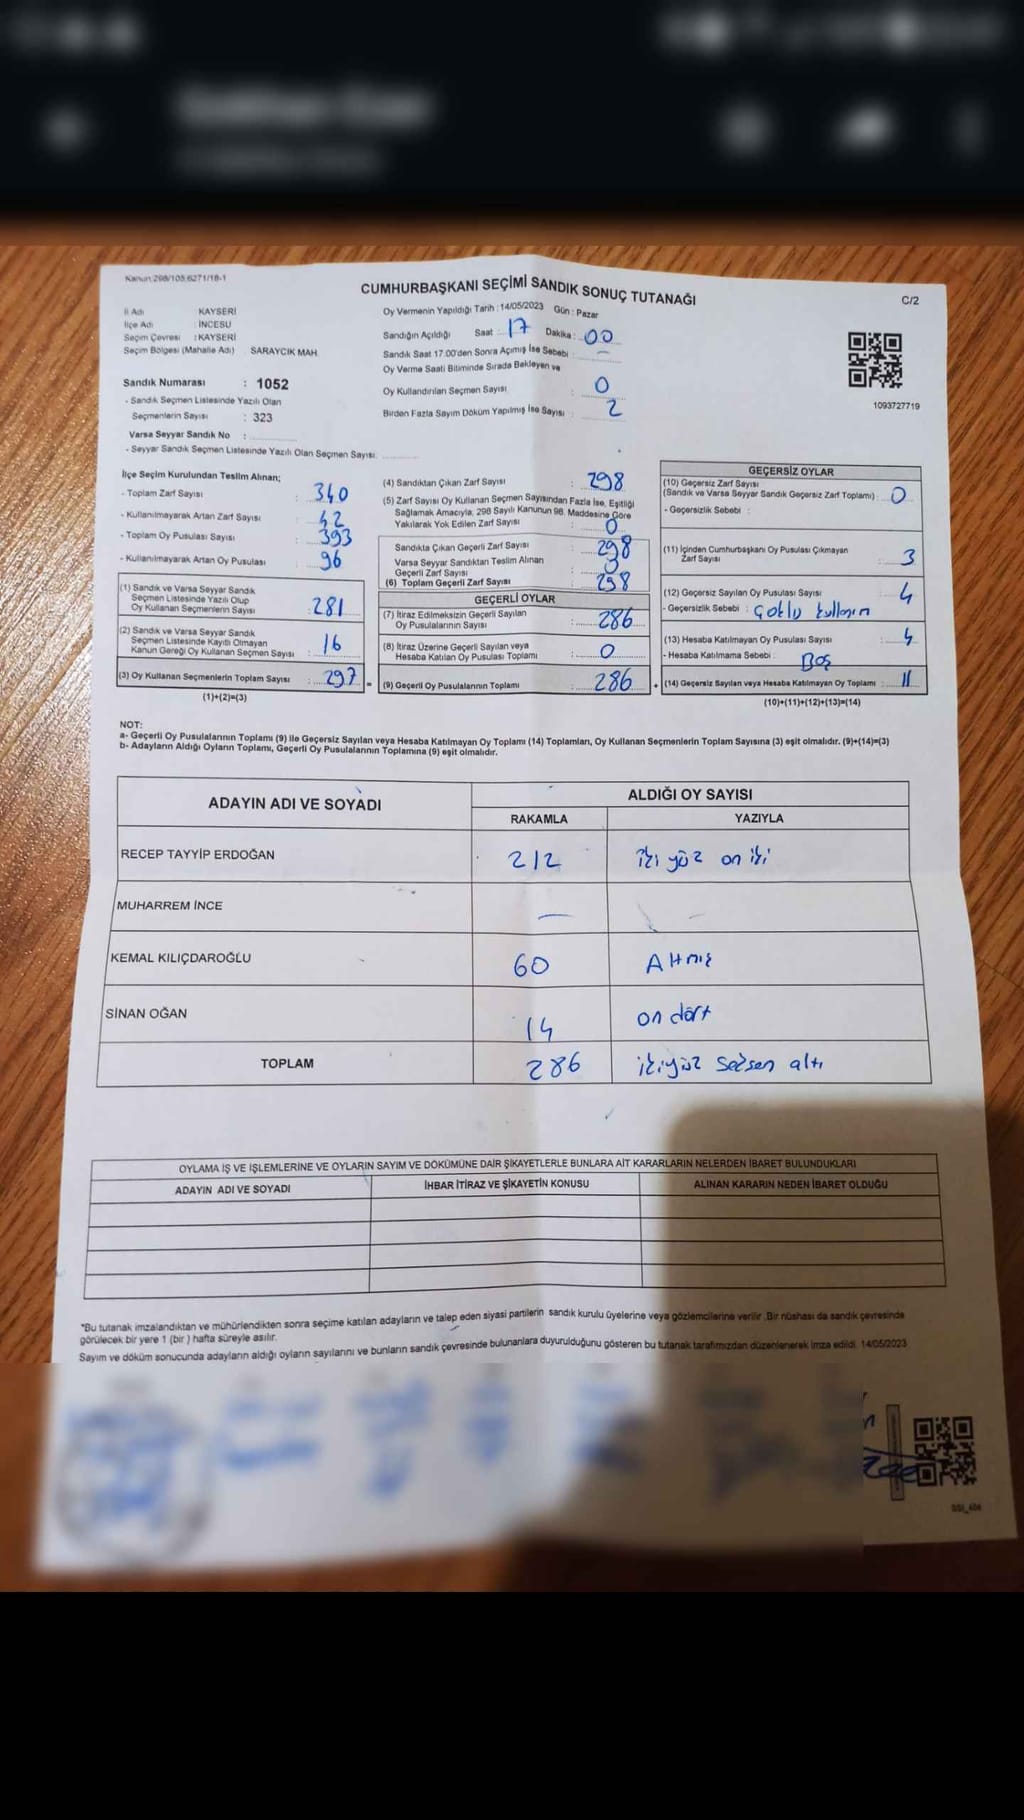 Kanun:298/105;6271/18-1
CUMHURBAŞKANI SEÇİMİ SANDIK SONUÇ TUTANAĞI
C/2
İl Adı KAYSERİ
İlçe Adı : İNCESU
Seçim Çevresi : KAYSERİ
Seçim Bölgesi (Mahalle Adı) SARAYCIK MAH.
Sandık Numarası : 1052
- Sandık Seçmen Listesinde Yazılı Olan
Seçmenlerin Sayısı : 323
Varsa Seyyar Sandık No :
- Seyyar Sandık Seçmen Listesinde Yazılı Olan Seçmen Sayısı:
Oy Vermenin Yapıldığı Tarih : 14/05/2023 Gün : Pazar
Sandığın Açıldığı Saat : 17 Dakika : 00
Sandık Saat 17.00'den Sonra Açılmış İse Sebebi : —
Oy Verme Saati Bitiminde Sırada Bekleyen ve
Oy Kullandırılan Seçmen Sayısı : 0
Birden Fazla Sayım Döküm Yapılmış İse Sayısı : 2
1093727719
İlçe Seçim Kurulundan Teslim Alınan;
- Toplam Zarf Sayısı : 340
- Kullanılmayarak Artan Zarf Sayısı : 42
- Toplam Oy Pusulası Sayısı : 393
- Kullanılmayarak Artan Oy Pusulası : 96
(1) Sandık ve Varsa Seyyar Sandık
Seçmen Listesinde Yazılı Olup
Oy Kullanan Seçmenlerin Sayısı : 281
(2) Sandık ve Varsa Seyyar Sandık
Seçmen Listesinde Kayıtlı Olmayan
Kanun Gereği Oy Kullanan Seçmen Sayısı : 16
(3) Oy Kullanan Seçmenlerin Toplam Sayısı : 297 =
(1)+(2)=(3)
(4) Sandıktan Çıkan Zarf Sayısı : 298
(5) Zarf Sayısı Oy Kullanan Seçmen Sayısından Fazla İse, Eşitliği
Sağlamak Amacıyla, 298 Sayılı Kanunun 98. Maddesine Göre
Yakılarak Yok Edilen Zarf Sayısı : 0
Sandıkta Çıkan Geçerli Zarf Sayısı : 298
Varsa Seyyar Sandıktan Teslim Alınan
Geçerli Zarf Sayısı :
(6) Toplam Geçerli Zarf Sayısı : 298
GEÇERLİ OYLAR
(7) İtiraz Edilmeksizin Geçerli Sayılan
Oy Pusulalarının Sayısı : 286
(8) İtiraz Üzerine Geçerli Sayılan veya
Hesaba Katılan Oy Pusulası Toplamı : 0
(9) Geçerli Oy Pusulalarının Toplamı : 286 +
GEÇERSİZ OYLAR
(10) Geçersiz Zarf Sayısı
(Sandık ve Varsa Seyyar Sandık Geçersiz Zarf Toplamı) : 0
- Geçersizlik Sebebi :
(11) İçinden Cumhurbaşkanı Oy Pusulası Çıkmayan
Zarf Sayısı : 3
(12) Geçersiz Sayılan Oy Pusulası Sayısı : 4
- Geçersizlik Sebebi : Çoklu
(13) Hesaba Katılmayan Oy Pusulası Sayısı : 4
- Hesaba Katılmama Sebebi : Boş
(14) Geçersiz Sayılan veya Hesaba Katılmayan Oy Toplamı : 11
(10)+(11)+(12)+(13)=(14)
NOT:
a- Geçerli Oy Pusulalarının Toplamı (9) ile Geçersiz Sayılan veya Hesaba Katılmayan Oy Toplamı (14) Toplamları, Oy Kullanan Seçmenlerin Toplam Sayısına (3) eşit olmalıdır. (9)+(14)=(3)
b- Adayların Aldığı Oyların Toplamı, Geçerli Oy Pusulalarının Toplamına (9) eşit olmalıdır.
ADAYIN ADI VE SOYADI
ALDIĞI OY SAYISI
RAKAMLA YAZIYLA
RECEP TAYYİP ERDOĞAN 212 iki yüz on iki
MUHARREM İNCE — -
KEMAL KILIÇDAROĞLU 60 Altmış
SİNAN OĞAN 14 on dört
TOPLAM 286 ikiyüz seksen altı
OYLAMA İŞ VE İŞLEMLERİNE VE OYLARIN SAYIM VE DÖKÜMÜNE DAİR ŞİKAYETLERLE BUNLARA AİT KARARLARIN NELERDEN İBARET BULUNDUKLARI
ADAYIN ADI VE SOYADI İHBAR İTİRAZ VE ŞİKAYETİN KONUSU ALINAN KARARIN NEDEN İBARET OLDUĞU
*Bu tutanak imzalandıktan ve mühürlendikten sonra seçime katılan adayların ve talep eden siyasi partilerin sandık kurulu üyelerine veya gözlemcilerine verilir. Bir nüshası da sandık çevresinde
görülecek bir yere 1 (bir) hafta süreyle asılır.
Sayım ve döküm sonucunda adayların aldığı oyların sayılarını ve bunların sandık çevresinde bulunanlara duyurulduğunu gösteren bu tutanak tarafımızdan düzenlenerek imza edildi. 14/05/2023